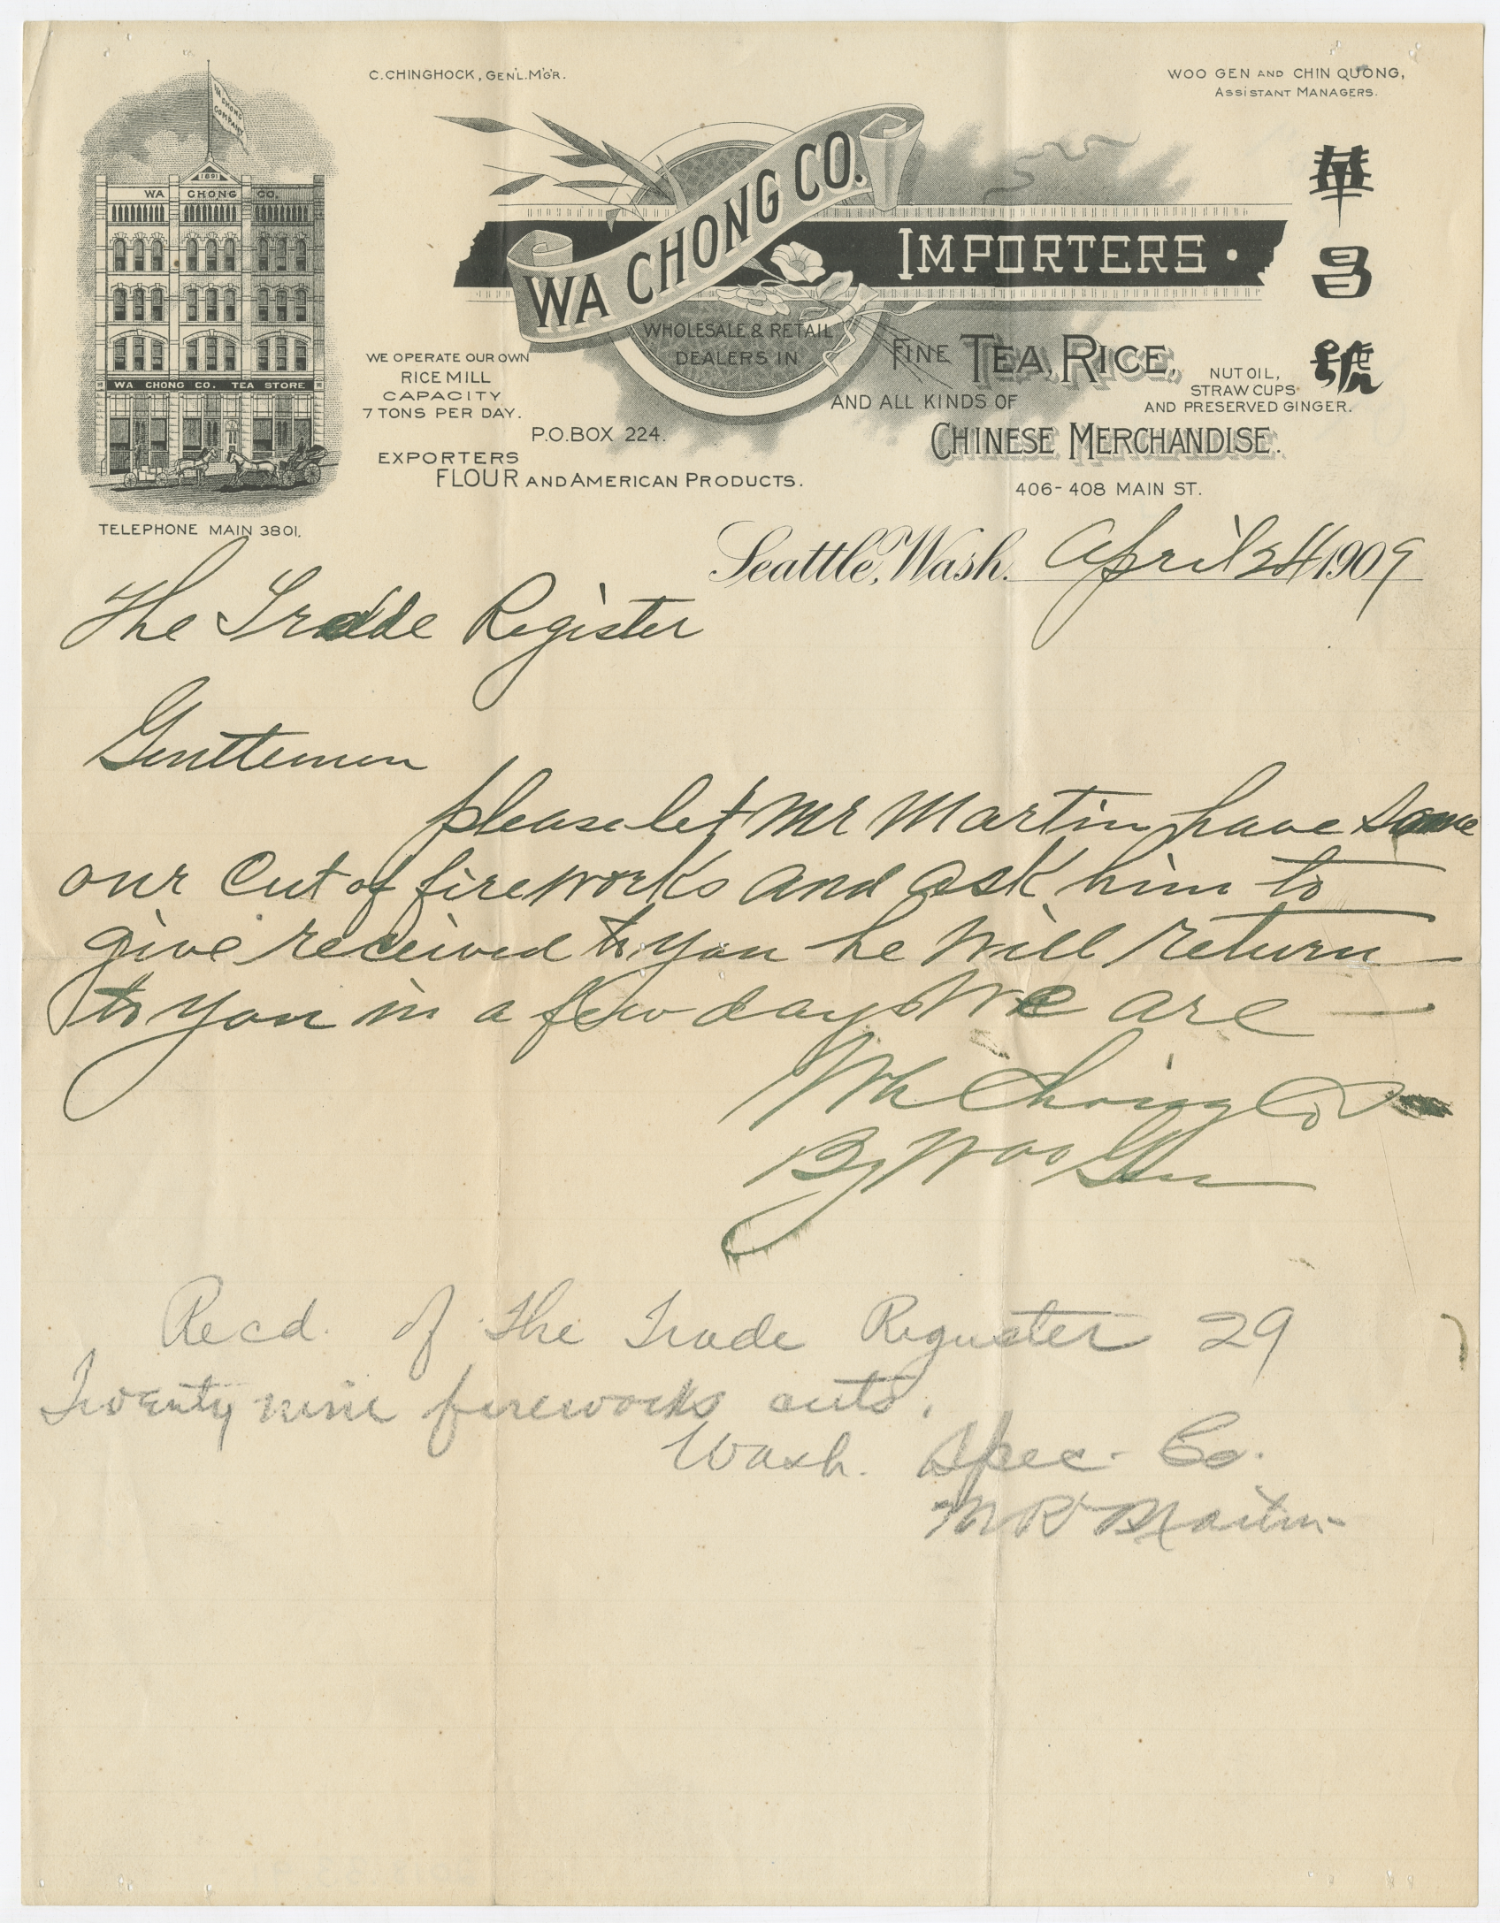 C. CHINGHOCK, GEN'L. M'G'R.
WOO GEN AND CHIN QUONG,
ASSISTANT MANAGERS.
WA CHONG COMPANY
1891
WA CHONG CO.
WA CHONG CO. TEA STORE
TELEPHONE MAIN 3801.
WA CHONG CO.
IMPORTERS
華
昌
號
WHOLESALE & RETAIL
DEALERS IN
FINE TEA, RICE,
NUT OIL,
STRAW CUPS
AND PRESERVED GINGER.
AND ALL KINDS OF
CHINESE MERCHANDISE.
WE OPERATE OUR OWN
RICE MILL
CAPACITY
7 TONS PER DAY.
P.O. BOX 224.
EXPORTERS
FLOUR AND AMERICAN PRODUCTS.
406-408 MAIN ST.
Seattle, Wash. April 24 1909
The Tradde Register
Gentlemen
please let Mr Martin have some
our Cut of fireworks and ask him to
give received to you he will return
to you in a few days We are
Wa Chong Co
By Woo Gen
Recd. of The Trade Reguster 29
Twenty nine fireworks cuts.
Wash. Spec. Co.
M R Martin